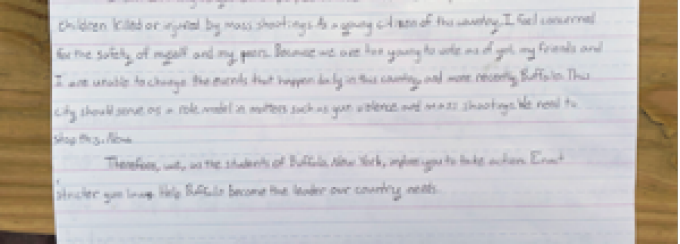 children killed or injured by mass shootings. As a young citizen of this country, I feel concerned
for the safety of myself and my peers. Because we are too young to vote as of yet, my friends and
I are unable to change the events that happen daily in this country, and more recently, Buffalo. This
city should serve as a role model in matters such as gun violence and mass shootings. We need to
stop this. Now.
Therefore, we, as the students of Buffalo, New York, implore you to take action. Enact
stricter gun laws. Help Buffalo become the leader our country needs.